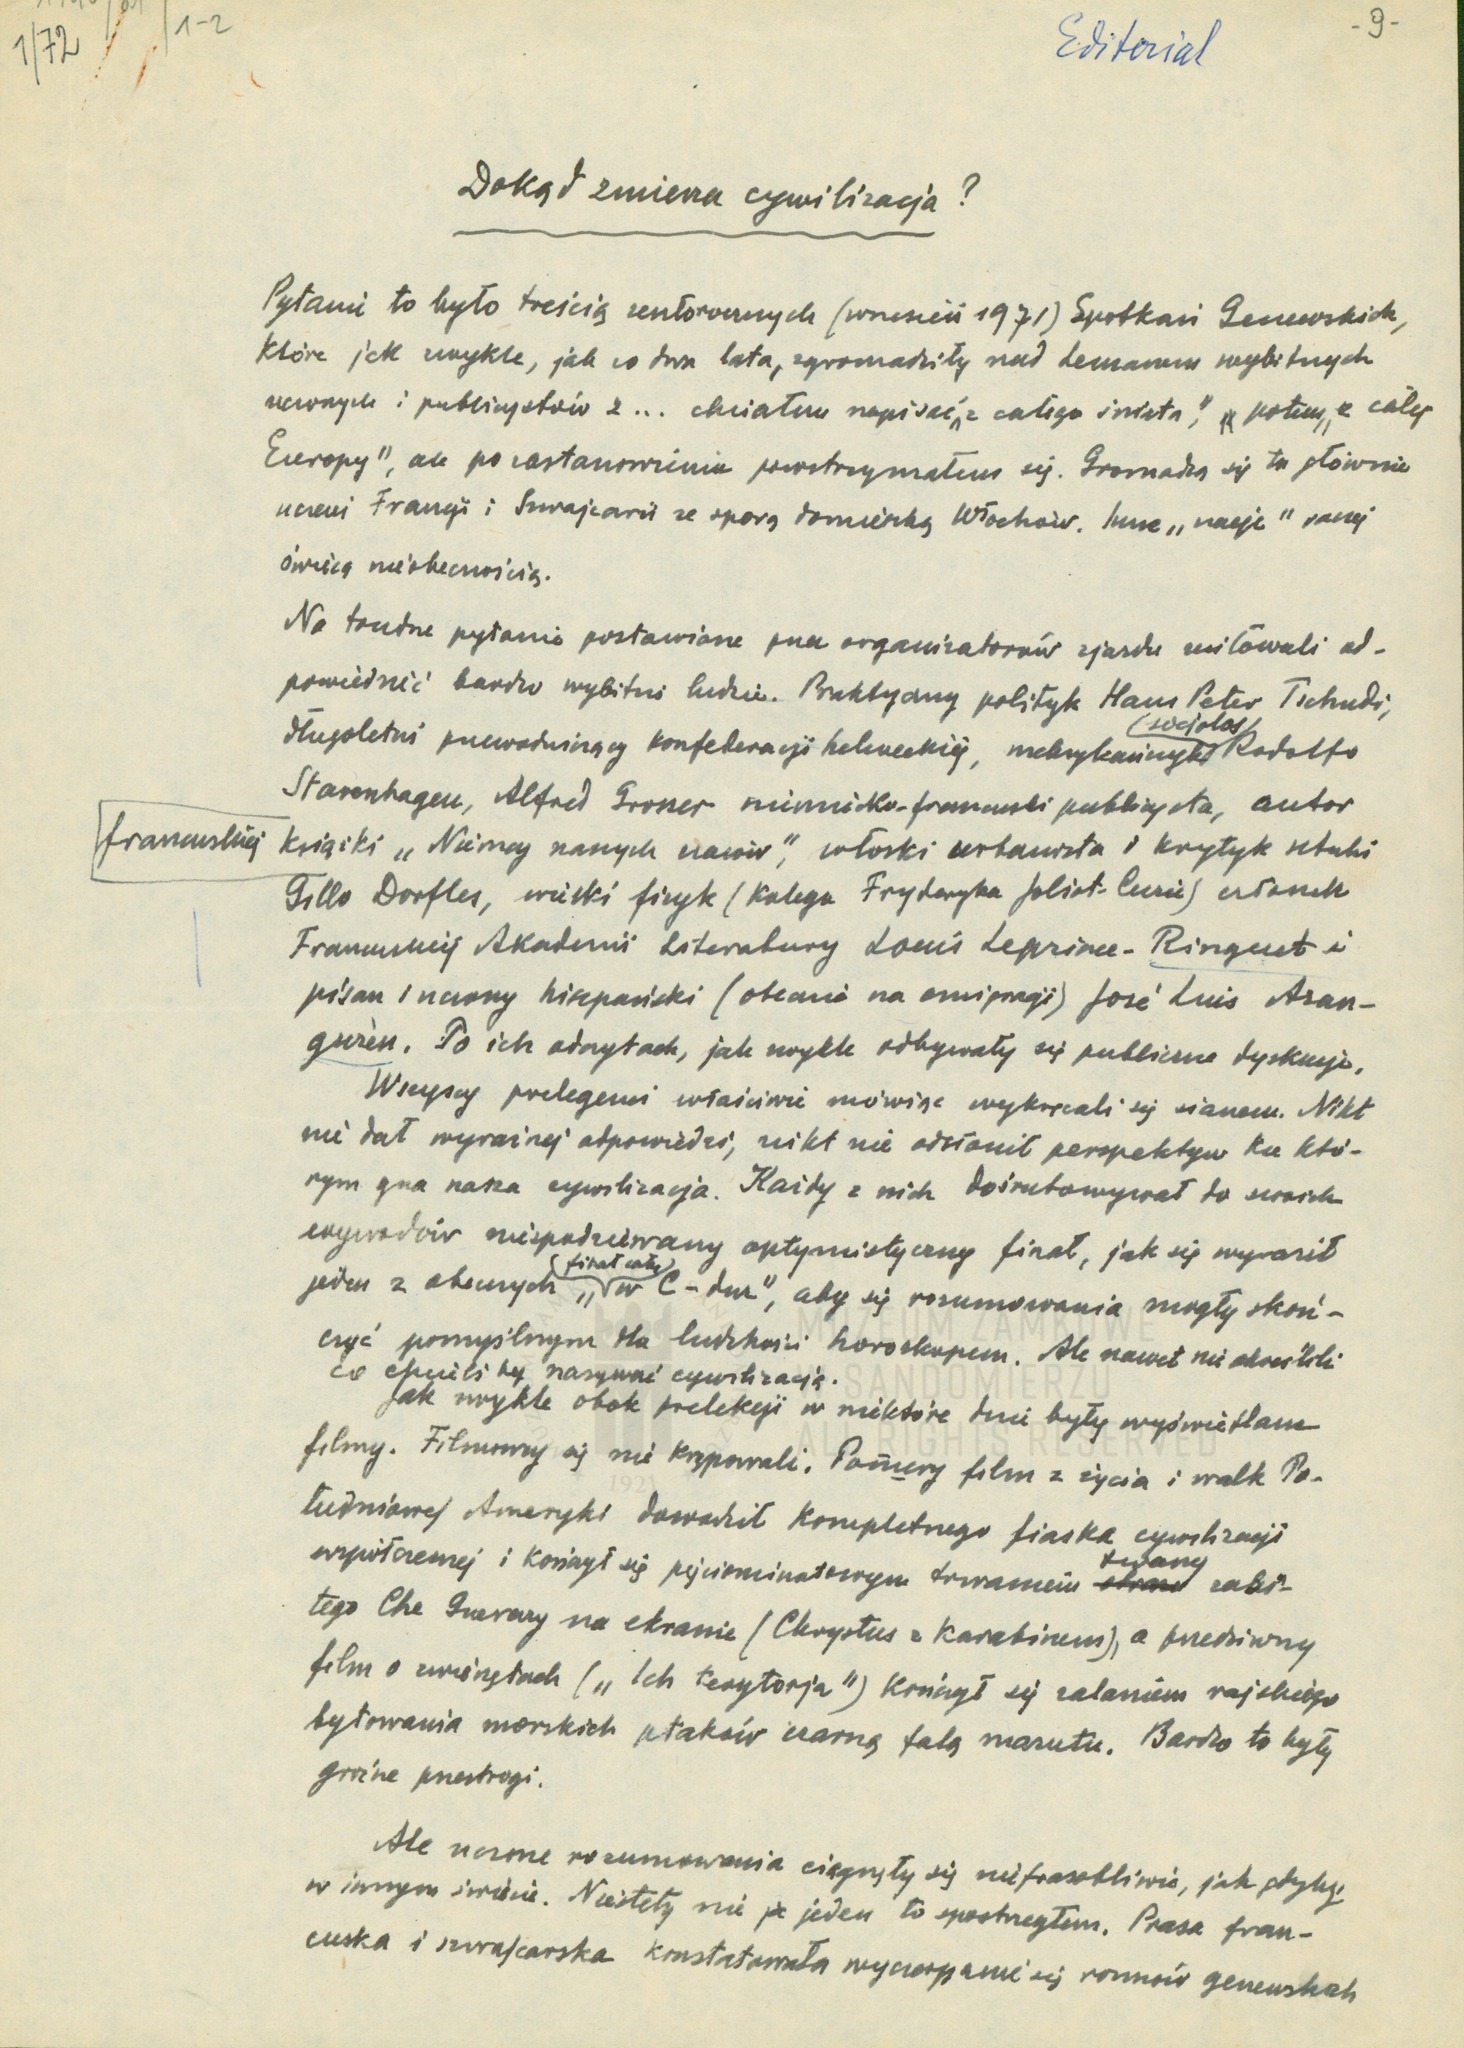 1/72
1-2
Editorial
-9-
Dokąd zmierza cywilizacja?
Pytanie to było treścią zeszłorocznych (wrzesień 1971) Spotkań Genewskich,
które jak zwykle, jak co dwa lata, zgromadziły nad Lemanem wybitnych
uczonych i publicystów z... chciałem napisać „z całego świata”, potem „z całej
Europy”, ale po zastanowieniu powstrzymałem się. Gromadzą się tu głównie
uczeni Francji i Szwajcarii ze sporą domieszką Włochów. Inne „nacje” raczej
świecą nieobecnością.
Na trudne pytanie postawione przez organizatorów zjazdu usiłowali od-
powiedzieć bardzo wybitni ludzie. Praktyczny polityk Hans Peter Tschudi,
długoletni przewodniczący konfederacji helweckiej, meksykańczyk (socjolog) Rodolfo
Stavenhagen, Alfred Grosser niemiecko-francuski publicysta, autor
francuskiej książki „Niemcy naszych czasów”, włoski urbanista i krytyk sztuki
Gillo Dorfles, wielki fizyk (kolega Fryderyka Joliot-Curie) członek
Francuskiej Akademii Literatury Louis Leprince-Ringuet i
pisarz i uczony hiszpański (obecnie na emigracji) José Luis Aran-
gurèn. Po ich odczytach, jak zwykle odbywały się publiczne dyskusje.
Wszyscy prelegenci właściwie mówiąc wykręcali się sianem. Nikt
nie dał wyraźnej odpowiedzi, nikt nie odsłonił perspektyw ku któ-
rym gna nasza cywilizacja. Każdy z nich dośrubowywał do swoich
wywodów niespodziewany optymistyczny finał, jak się wyraził
jeden z obecnych „(finał cały) w C-dur”, aby się rozumowania mogły skoń-
czyć pomyślnym dla ludzkości horoskopem. Ale nawet nie określili
co chcieli by nazywać cywilizacją.
Jak zwykle obok prelekcji w niektóre dnie były wyświetlane
filmy. Filmowcy się nie krępowali. Ponury film z życia i walk Po-
łudniowej Ameryki dowodził kompletnego fiaska cywilizacji
współczesnej i kończył się pięciominutowym trwaniem twarzy zabi-
tego Che Guevary na ekranie (Chrystus z karabinem), a przedziwny
film o zwierzętach („Ich terytorja”) kończył się zalaniem rajskiego
bytowania morskich ptaków czarną falą mazutu. Bardzo to były
groźne przestrogi.
Ale uczone rozumowania ciągnęły się niefrasobliwie, jak gdyby
w innym świecie. Niestety nie ja jeden to spostrzegłem. Prasa fran-
cuska i szwajcarska konstatowała wyczerpanie się rozmów genewskich
MUZEUM ZAMKOWE
W SANDOMIERZU
ALL RIGHTS RESERVED
1921